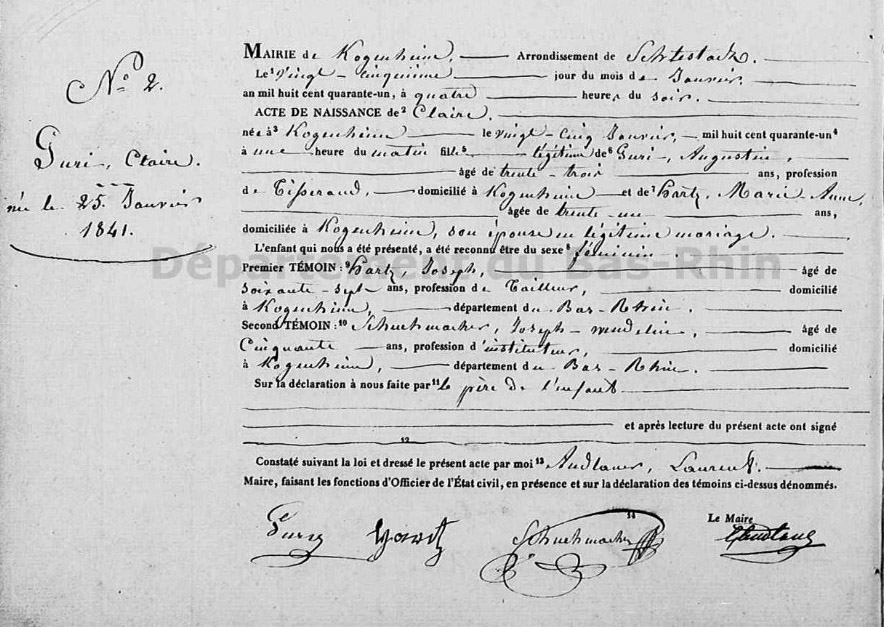 N° 2.
Guri, Claire.
née le 25 Janvier
1841.
MAIRIE de Kogenheim, Arrondissement de Schlestadt.
Le 1 vingt-cinquième jour du mois de Janvier
an mil huit cent quarante-un, à quatre heures du soir.
ACTE DE NAISSANCE de 2 Claire.
née à 3 Kogenheim le vingt-cinq Janvier, mil huit cent quarante-un 4
à une heure du matin fille 5 légitime de 6 Guri, Augustin,
âgé de trente-trois ans, profession
de Tisserand, domicilié à Kogenheim et de 7 Hartz, Marie Anne,
âgée de trente-un ans,
domiciliée à Kogenheim, son épouse en légitime mariage.
L'enfant qui nous a été présenté, a été reconnu être du sexe 8 féminin.
Département du Bas-Rhin
Premier TÉMOIN : 9 Hartz, Joseph, âgé de
soixante-sept ans, profession de Tailleur, domicilié
à Kogenheim, département du Bas-Rhin.
Second TÉMOIN : 10 Schuhmacher, Joseph-wendelin, âgé de
Cinquante ans, profession d'instituteur, domicilié
à Kogenheim, département du Bas-Rhin.
Sur la déclaration à nous faite par 11 le père de l'enfant
et après lecture du présent acte ont signé
12
Constaté suivant la loi et dressé le présent acte par moi 13 Andlauer, Laurent.
Maire, faisant les fonctions d'Officier de l'État civil, en présence et sur la déclaration des témoins ci-dessus dénommés.
14
Le Maire
Gury Hartz Schuhmacher Andlauer